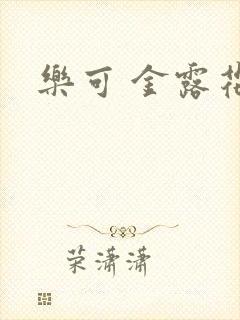 樂可 金露花
荣潇潇